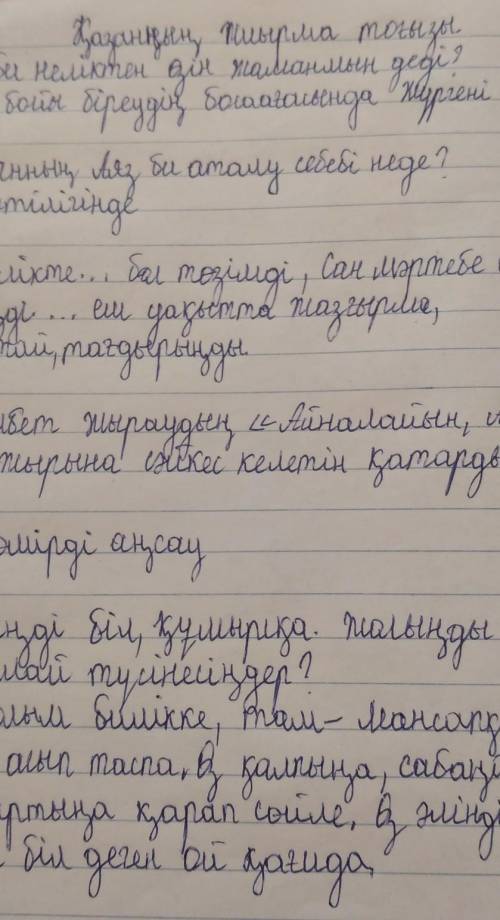 Қазанның жиырма тоғызы
би неліктен өзін жаманмын деді?
бойы біреудің босағасында жүргені
ның Аяз би аталу себебі неде?
тілігінде
лікте... бол төзімді, Сан мәртебе
ді... еш уақытта жазғырма,
тағдырыңды.
бет жыраудың «Айналайын,
жырына сәйкес келетін қатарды
өмірді аңсау
ңді біл, құмырсқа. жолыңды
лай түсінесіңдер?
билікке, там- Мансапқ
алып таспа. Өз қалпыңа, сабаңа
ртыңа қарап сөйле, Өз әлінді
біл деген ой қағида,